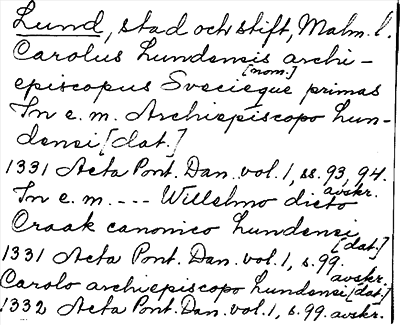 Lund, stad och stift, Malm. l.
Carolus Lundensis archi-
episcopus Svecieque [nom.] primas
In e. m. Archiepiscopo Lun-
densi [dat.]
1331 Acta Pont. Dan. vol. 1, ss. 93, 94. avskr.
In e. m. --- Willelmo dicto
Craak canonico Lundensi [dat.]
1331 Acta Pont. Dan. vol. 1, s. 99. avskr.
Carolo archiepiscopo Lundensi [dat.]
1332 Acta Pont. Dan. vol. 1, s. 99. avskr.